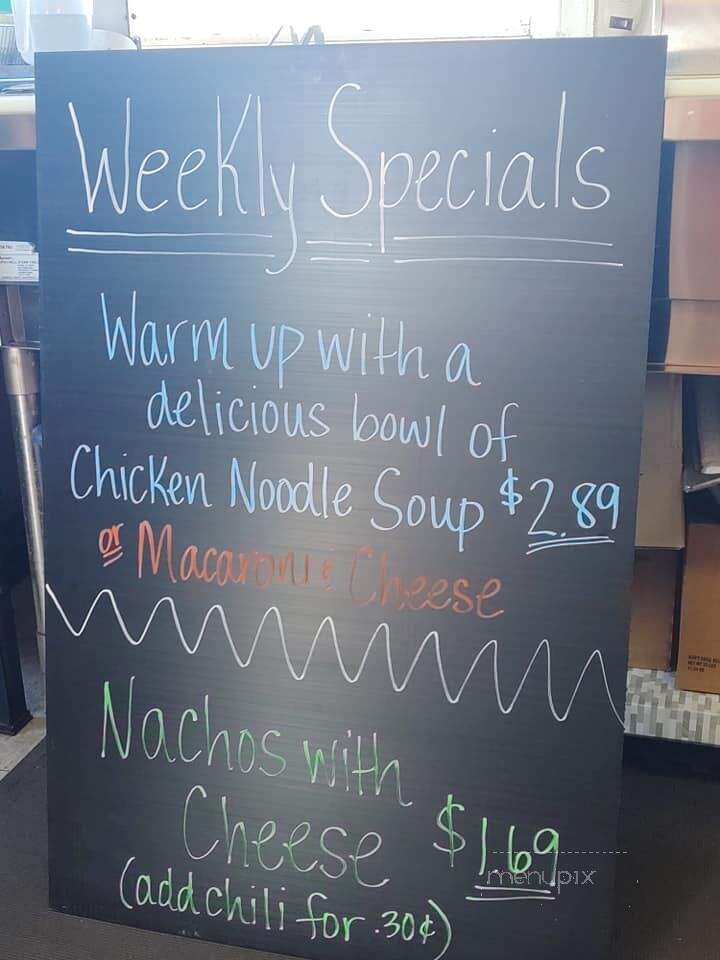 Weekly Specials
Warm up with a
delicious bowl of
Chicken Noodle Soup $2.89
or Macaroni & Cheese
Nachos with
Cheese $1.69
(add chili for .30¢)
menupix